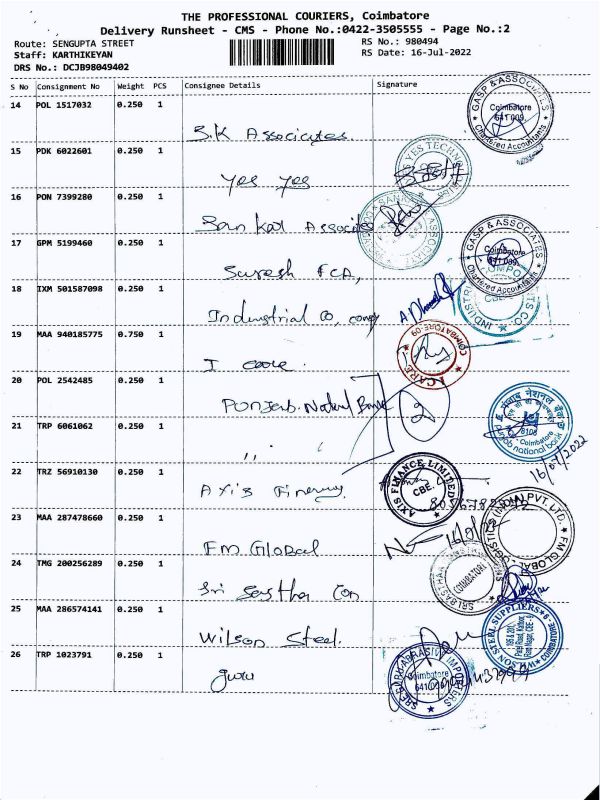 THE PROFESSIONAL COURIERS, Coimbatore
Delivery Runsheet - CMS - Phone No.:0422-3505555 - Page No.:2
Route: SENGUPTA STREET
RS No.: 980494
Staff: KARTHIKEYAN
RS Date: 16-Jul-2022
DRS No.: DCJB98049402
S No Consignment No Weight PCS Consignee Details Signature
14 POL 1517032 0.250 1
S.K Associates
GASP & ASSOCIATES Coimbatore 641 009. Chartered Accountants
15 PDK 6022601 0.250 1
Yes Yes
YES TECHNO
16 PON 7399280 0.250 1
Associates
17 GPM 5199460 0.250 1
Suresh FCA,
GASP & ASSOCIATES Coimbatore 641 009. Chartered Accountants
18 IXM 501587098 0.250 1
Industrial Co,
INDUSTRI CO.
19 MAA 940185775 0.750 1
I care.
I CARE COIMBATORE-09
20 POL 2542485 0.250 1
Punjab National Bank 2
21 TRP 6061062 0.250 1
,, ,
पंजाब नेशनल बैंक
Coimbatore
punjab national bank
16/07/2022
22 TRZ 56910130 0.250 1
Axis
AXIS FINANCE LIMITED CBE.
23 MAA 287478660 0.250 1
FM Global
FM GLOBAL LOGISTICS (INDIA) PVT. LTD.
24 TMG 200256289 0.250 1
Sri Sastha Con
COIMBATORE
25 MAA 286574141 0.250 1
Wilson Steel.
WILSON STEEL SUPPLIERS COIMBATORE-9
26 TRP 1023791 0.250 1
guru
SRE GURU ABRASIVE IMPORTERS Coimbatore 641 009.